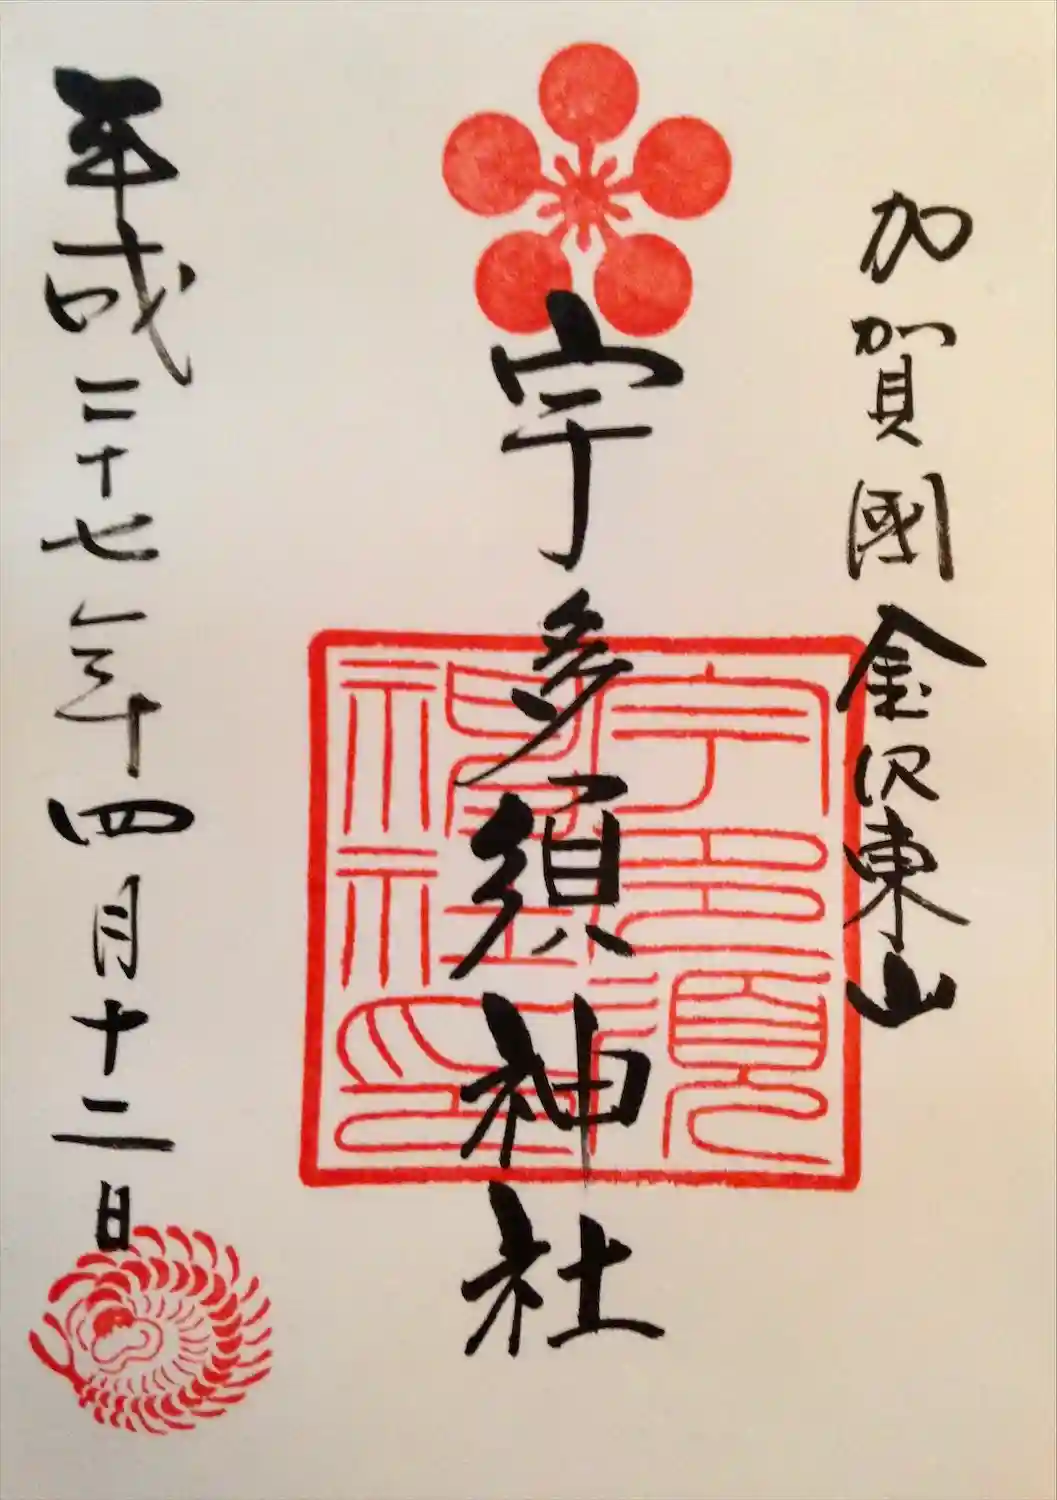 加賀國金沢東山
宇多須神社
宇多須神社印
平成二十七年四月十二日